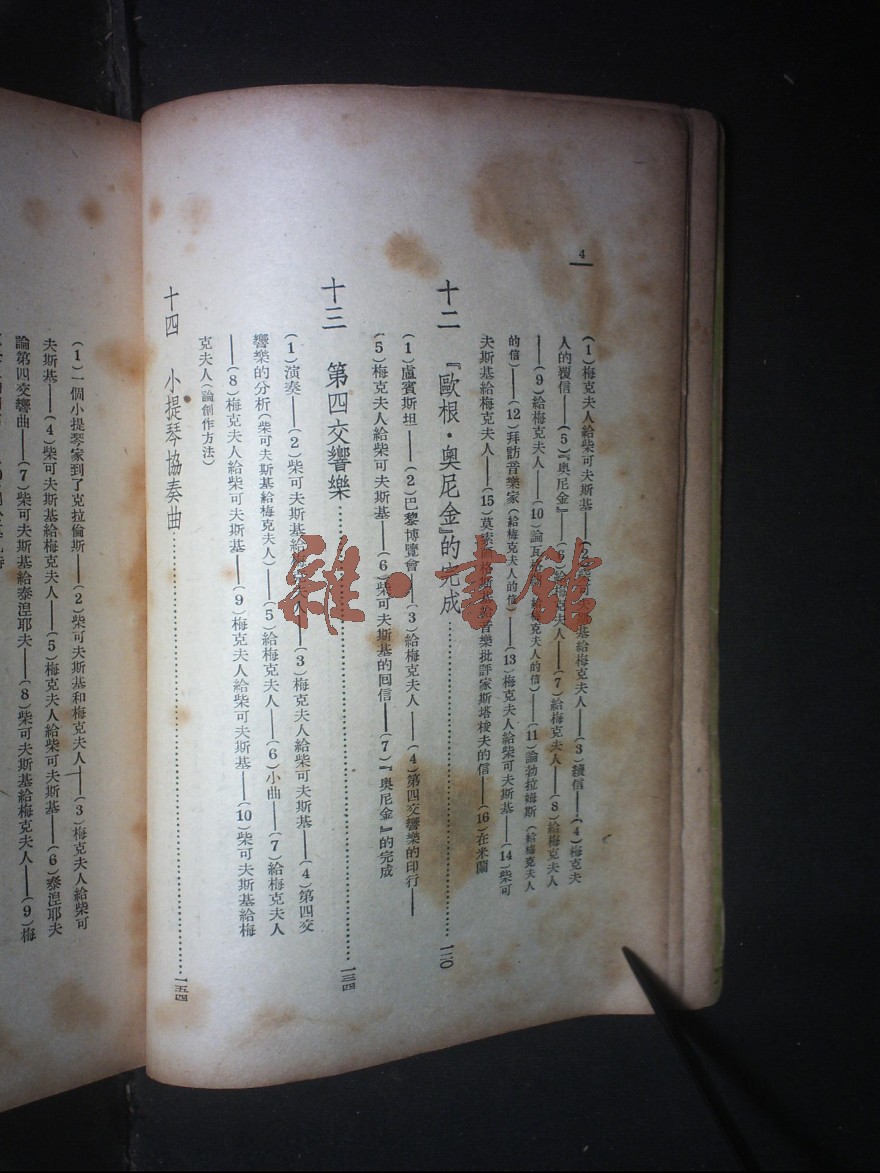 4
(1)梅克夫人給柴可夫斯基——(2)柴可夫斯基給梅克夫人——(3)續信——(4)梅克夫
人的覆信——(5)『奧尼金』——(6)給梅克夫人——(7)給梅克夫人——(8)給梅克夫人
——(9)給梅克夫人——(10)論瓦格納(給梅克夫人的信)——(11)論勃拉姆斯(給梅克夫人
的信)——(12)拜訪音樂家(給梅克夫人的信)——(13)梅克夫人給柴可夫斯基——(14)柴可
夫斯基給梅克夫人——(15)莫索爾格斯基給音樂批評家斯塔梭夫的信——(16)在米蘭
十二 『歐根·奧尼金』的完成……一二〇
(1)盧賓斯坦——(2)巴黎博覽會——(3)給梅克夫人——(4)第四交響樂的印行——
(5)梅克夫人給柴可夫斯基——(6)柴可夫斯基的回信——(7)『奧尼金』的完成
十三 第四交響樂……一三四
(1)演奏——(2)柴可夫斯基給梅克夫人——(3)梅克夫人給柴可夫斯基——(4)第四交
響樂的分析(柴可夫斯基給梅克夫人)——(5)給梅克夫人——(6)小曲——(7)給梅克夫人
——(8)梅克夫人給柴可夫斯基——(9)梅克夫人給柴可夫斯基——(10)柴可夫斯基給梅
克夫人(論創作方法)
十四 小提琴協奏曲……一五四
(1)一個小提琴家到了克拉倫斯——(2)柴可夫斯基和梅克夫人——(3)梅克夫人給柴可
夫斯基——(4)柴可夫斯基給梅克夫人——(5)梅克夫人給柴可夫斯基——(6)泰湼耶夫
論第四交響曲——(7)柴可夫斯基給泰湼耶夫——(8)柴可夫斯基給梅克夫人——(9)梅
雜·書館